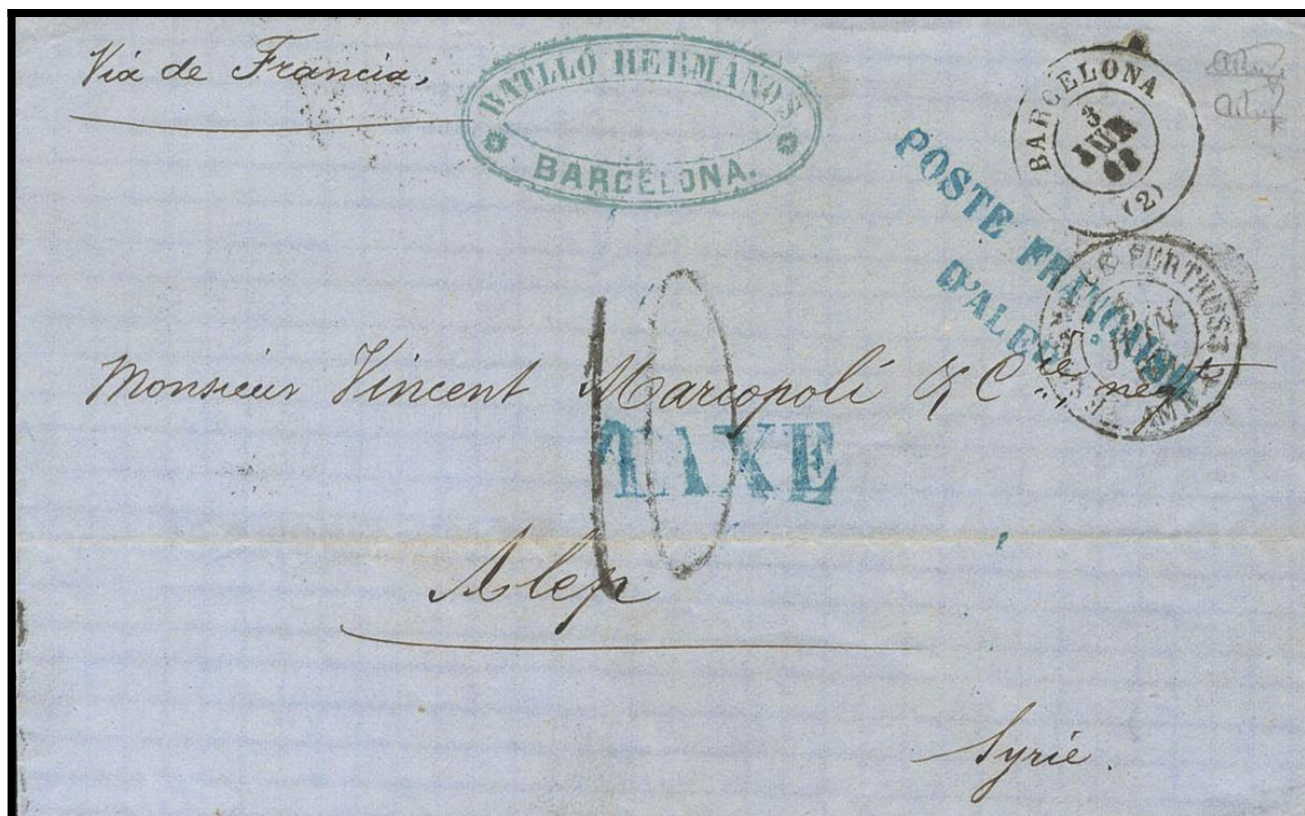 Viá de Francia,
BATLLÓ HERMANOS
BARCELONA.
BARCELONA
3
(2)
POSTE FRANÇAISE
D'ALEP
PERTHUS
Monsieur Vincent Marcopoli & Cie négts
10
TAXE
Alep
Syrie.